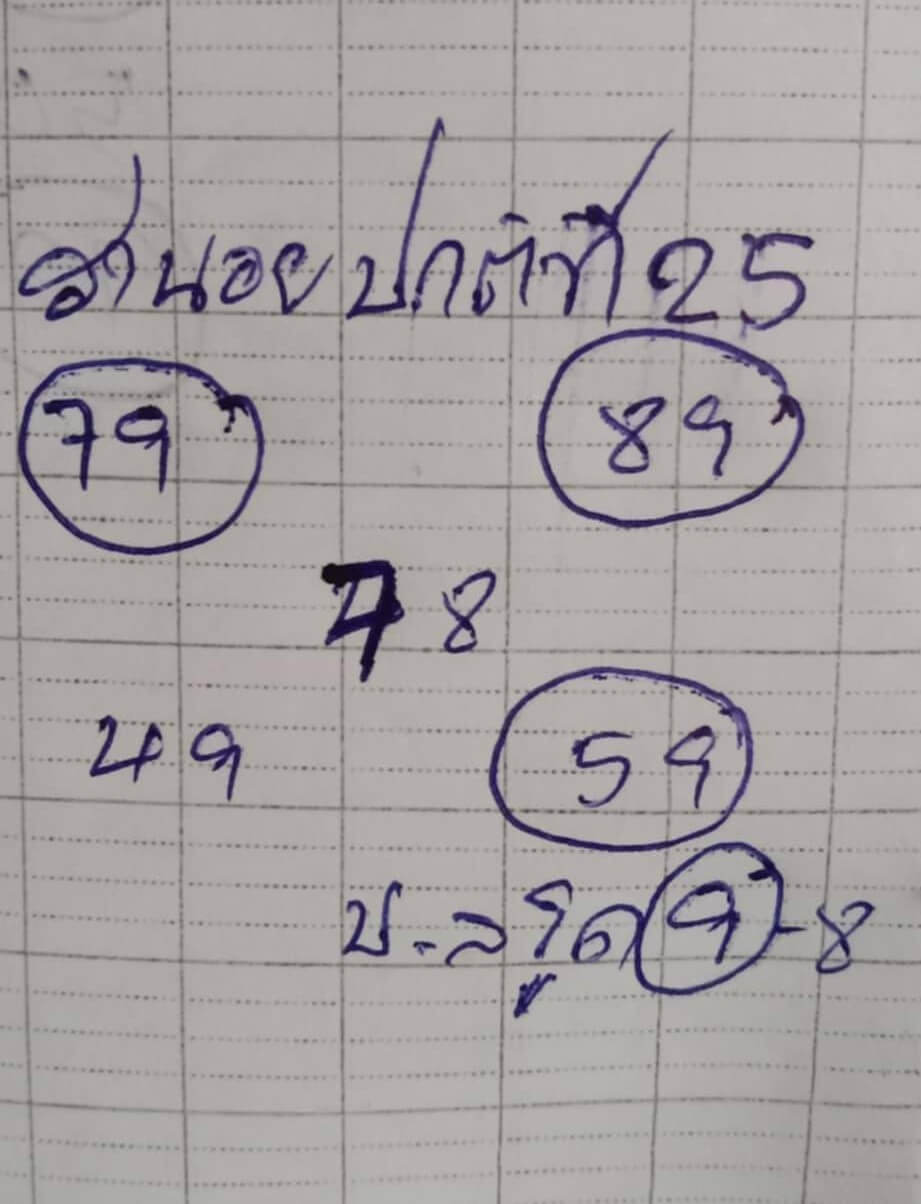 ฮานอย ปกติที่ 25
79 89
78
49 59
9-8